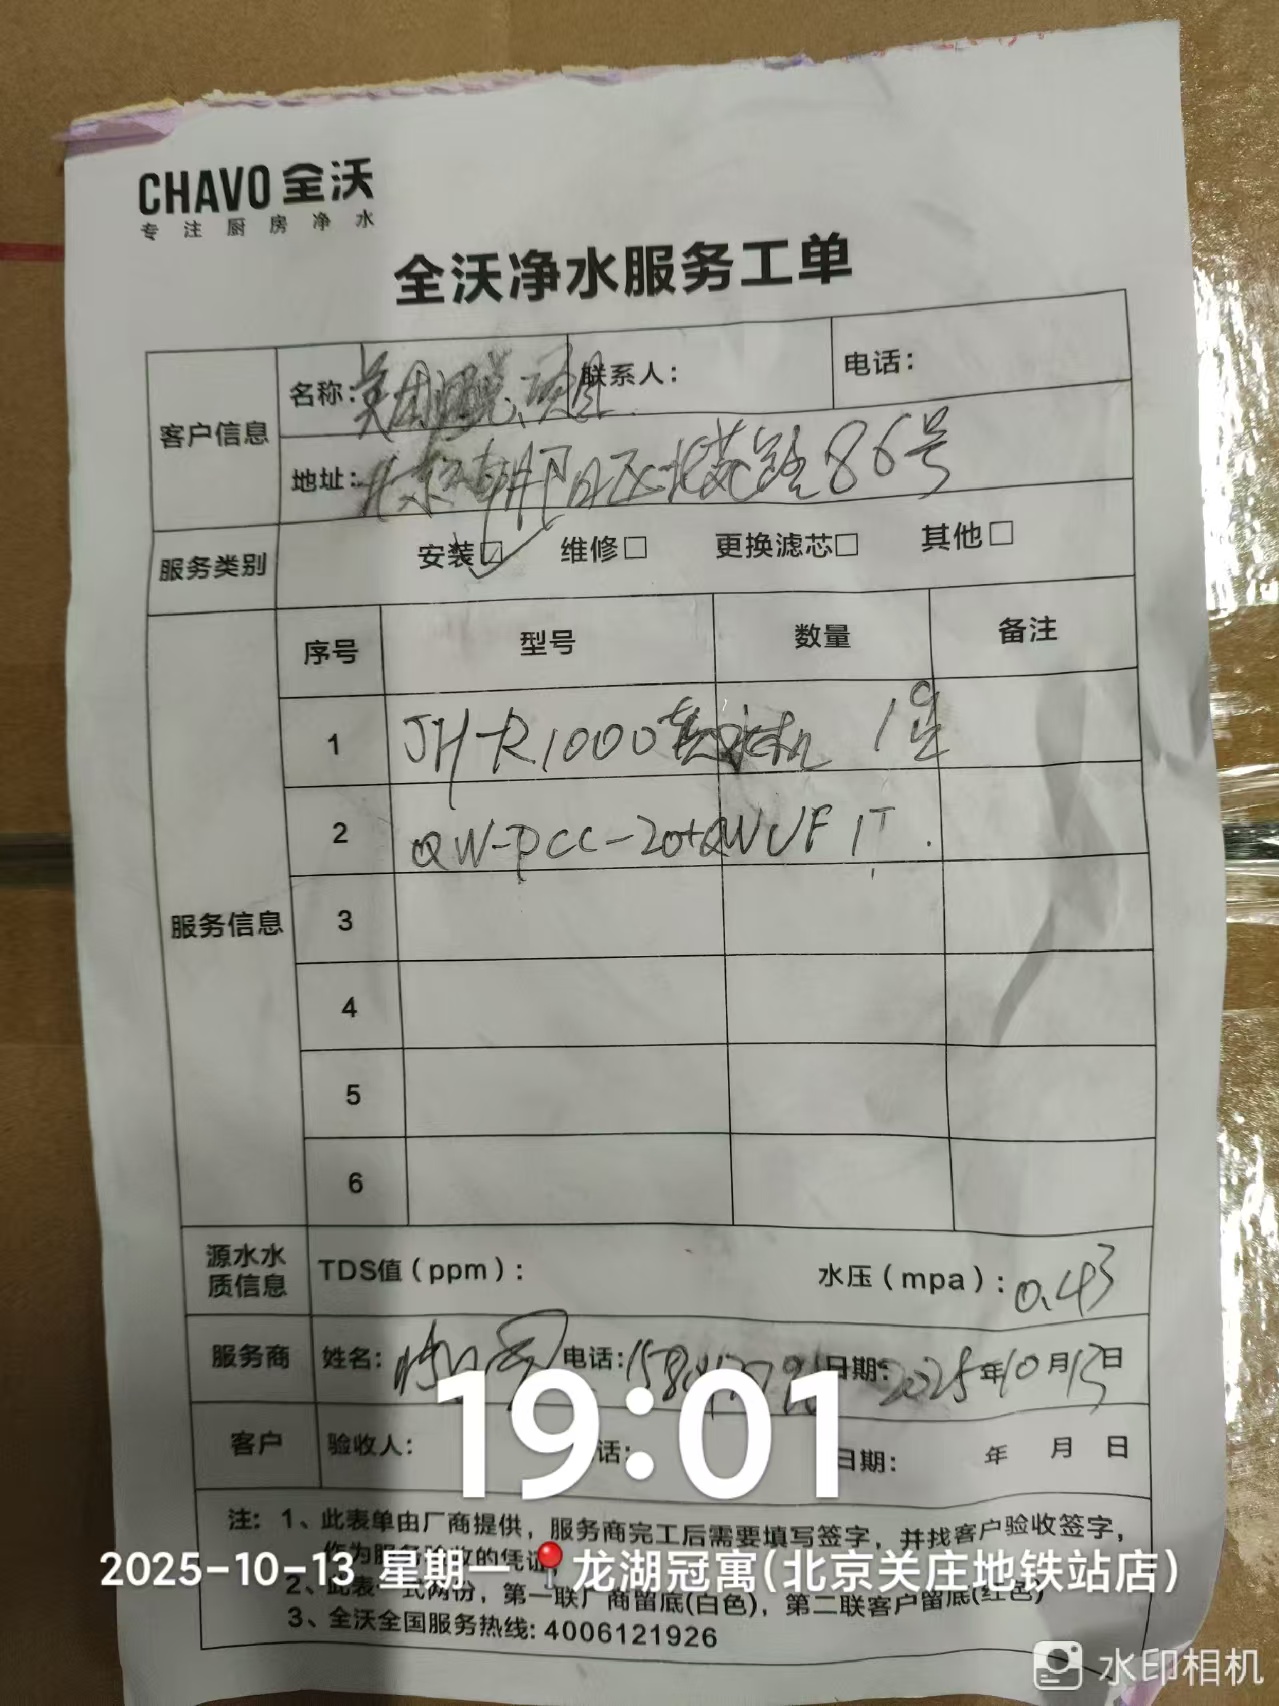 CHAVO 全沃
专注厨房净水
全沃净水服务工单
客户信息
名称: 联系人: 电话:
地址: 北京市朝阳区北苑路86号
服务类别 安装☑ 维修□ 更换滤芯□ 其他□
服务信息
序号 型号 数量 备注
1 JH-R1000 水机 1台
2 QW-PCC-20+QWUF 1T.
3
4
5
6
源水水质信息 TDS值(ppm): 水压(mpa): 0.43
服务商 姓名: 电话: 日期: 2025年10月13日
客户 验收人: 话: 日期: 年 月 日
19:01
注: 1、此表单由厂商提供,服务商完工后需要填写签字,并找客户验收签字,
作为服务 的凭证
2025-10-13 星期一 龙湖冠寓(北京关庄地铁站店)
2、此表一式两份,第一联厂商留底(白色),第二联客户留底(红色)
3、全沃全国服务热线: 4006121926
水印相机